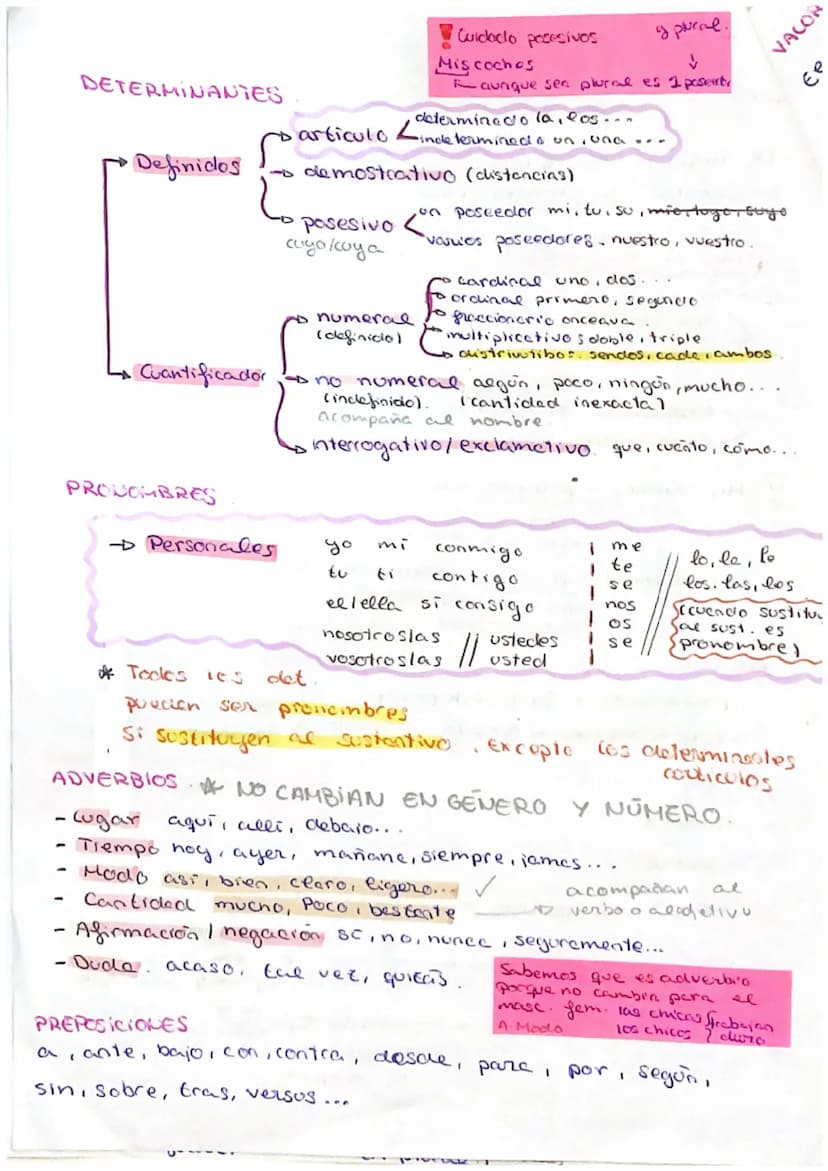 ! Cuidado posesivos y plural.
Mis coches ↓
aunque sea plural es 1 poseed.
VACON
DETERMINANTES
→ Definidos
→ artículo determinado la, los...
indeterminado un, una ...
→ demostrativo (distancias)
→ posesivo un poseedor mi, tu, su, mio, tuyo, suyo
cuyo/cuya varios poseedores. nuestro, vuestro.
→ Cuantificador
→ numeral cardinal uno, dos...
(definido) ordinal primero, segundo
fraccionario onceava.
multiplicativos doble, triple
distriutibos. sendos, cada, ambos
→ no numeral algún, poco, ningún, mucho...
(indefinido). (cantidad inexacta)
acompaña al nombre
→ interrogativo/exclamativo. que, cuánto, cómo...
PRONOMBRES
→ Personales
yo mí conmigo me lo, la, le
tu ti contigo te los. las, les
el/ella sí consigo se (cuando sustitu
nosotros/as // ustedes nos al sust. es
vosotros/as // usted os pronombre)
se
* Todos los det.
puedan ser pronombres
si sustituyen al sustantivo. Excepto los determinantes
artículos
ADVERBIOS. * NO CAMBIAN EN GÉNERO Y NÚMERO.
- Lugar aquí, allí, debajo...
- Tiempo hoy, ayer, mañana, siempre, jamas...
- Modo así, bien, claro, ligero... ✓ acompañan al
- Cantidad mucho, Poco, bastante → verbo o al adjetivo
- Afirmación / negación si, no, nunca, seguramente...
- Duda. acaso, tal vez, quizás.
Sabemos que es adverbio
porque no cambia para el
masc. fem. las chicas trabajan
A. Modo los chicos duro
PREPOSICIONES
a, ante, bajo, con, contra, desde, para, por, según,
sin, sobre, tras, versus ...